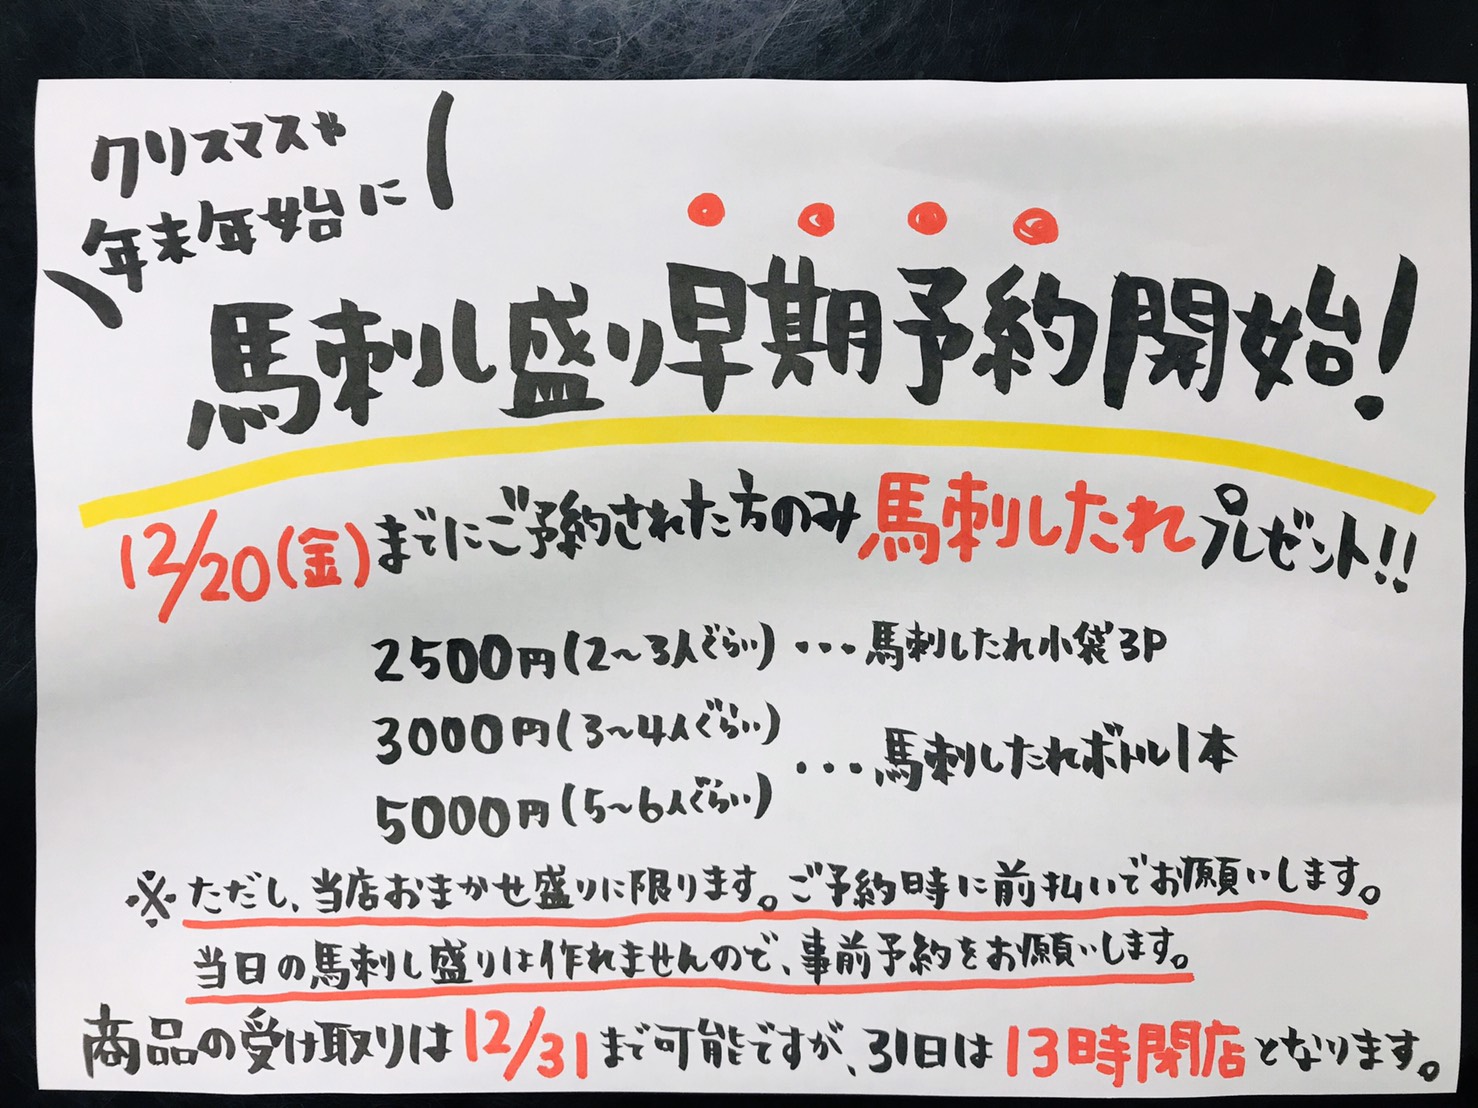 クリスマスや
年末年始に
馬刺し盛り早期予約開始!
12/20(金)までにご予約された方のみ馬刺したれプレゼント!!
2500円(2〜3人ぐらい)・・・馬刺したれ小袋3P
3000円(3〜4人ぐらい)
・・・馬刺したれボトル1本
5000円(5〜6人ぐらい)
※ただし、当店おまかせ盛りに限ります。ご予約時に前払いでお願いします。
当日の馬刺し盛りは作れませんので、事前予約をお願いします。
商品の受け取りは12/31まで可能ですが、31日は13時閉店となります。